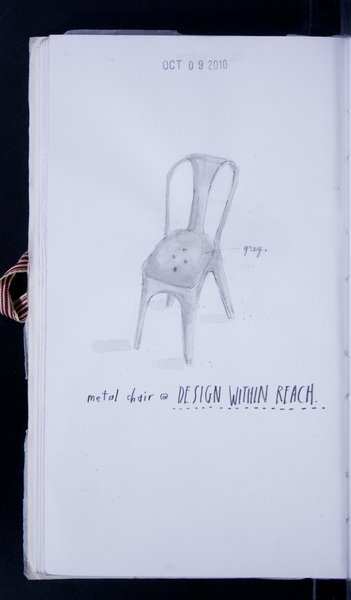 OCT 09 2010
gray.
metal chair @ DESIGN WITHIN REACH.